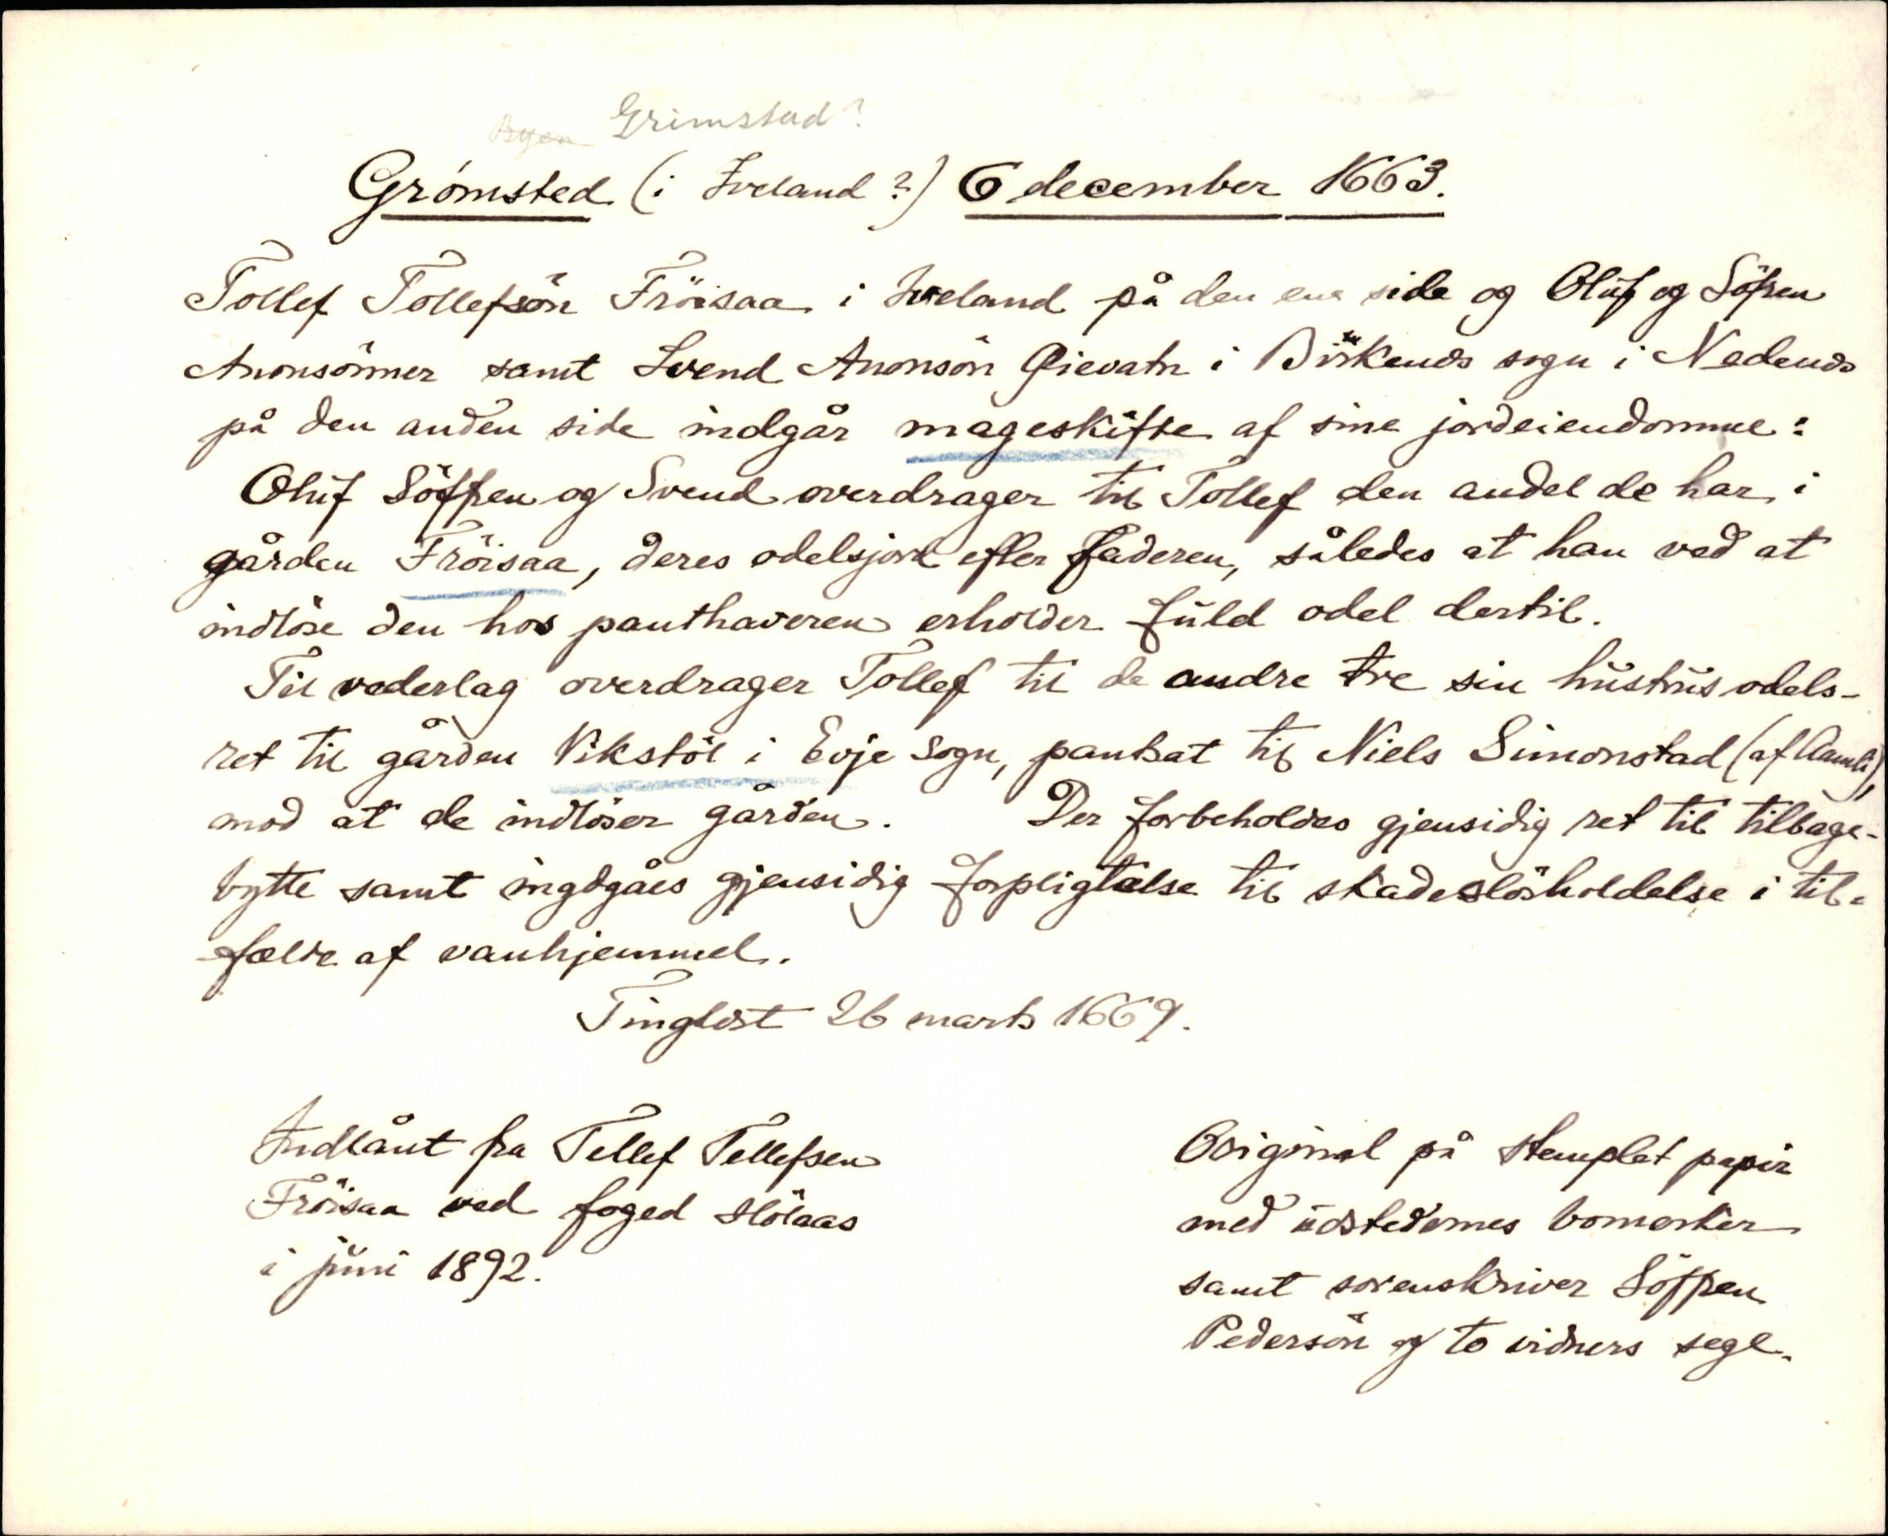 Byen Grimstad?
Grømsted (i Iveland?) 6 december 1663.
Tollef Tollefsön Fröisaa i Iveland på den ene side og Oluf og Söfren
Anonsönner samt Svend Anonsön i Birkends sogn i Nedends
på den anden side indgår mageskifte af sine jordeiendomme:
Oluf Söffren og Svend overdrager til Tollef den andel de har i
gården Fröisaa, deres odelsjord efter faderen, således at han ved at
indlöse den hos panthaveren erholder fuld odel dertil.
Til vederlag overdrager Tollef til de andre tre sin hustrus odels-
ret til gården Vikstöl i Evje sogn, pantsat til Niels Simonstad (af Aamli),
mod at de indlöser gården. Der forbeholdes gjensidig ret til tilbage-
bytte samt ingdgåes gjensidig forpligtelse til skadeslösholdelse i til-
fælde af vanhjemmel.
Tinglest 26 marts 1669.
Indlånt fra Tellef Tellefsen
Fröisaa ved foged Stölaas
i juni 1892.
Original på stemplet papir
med udstedernes bomerker
samt sorenskriver Söffren
Pedersön og to vidners segl.